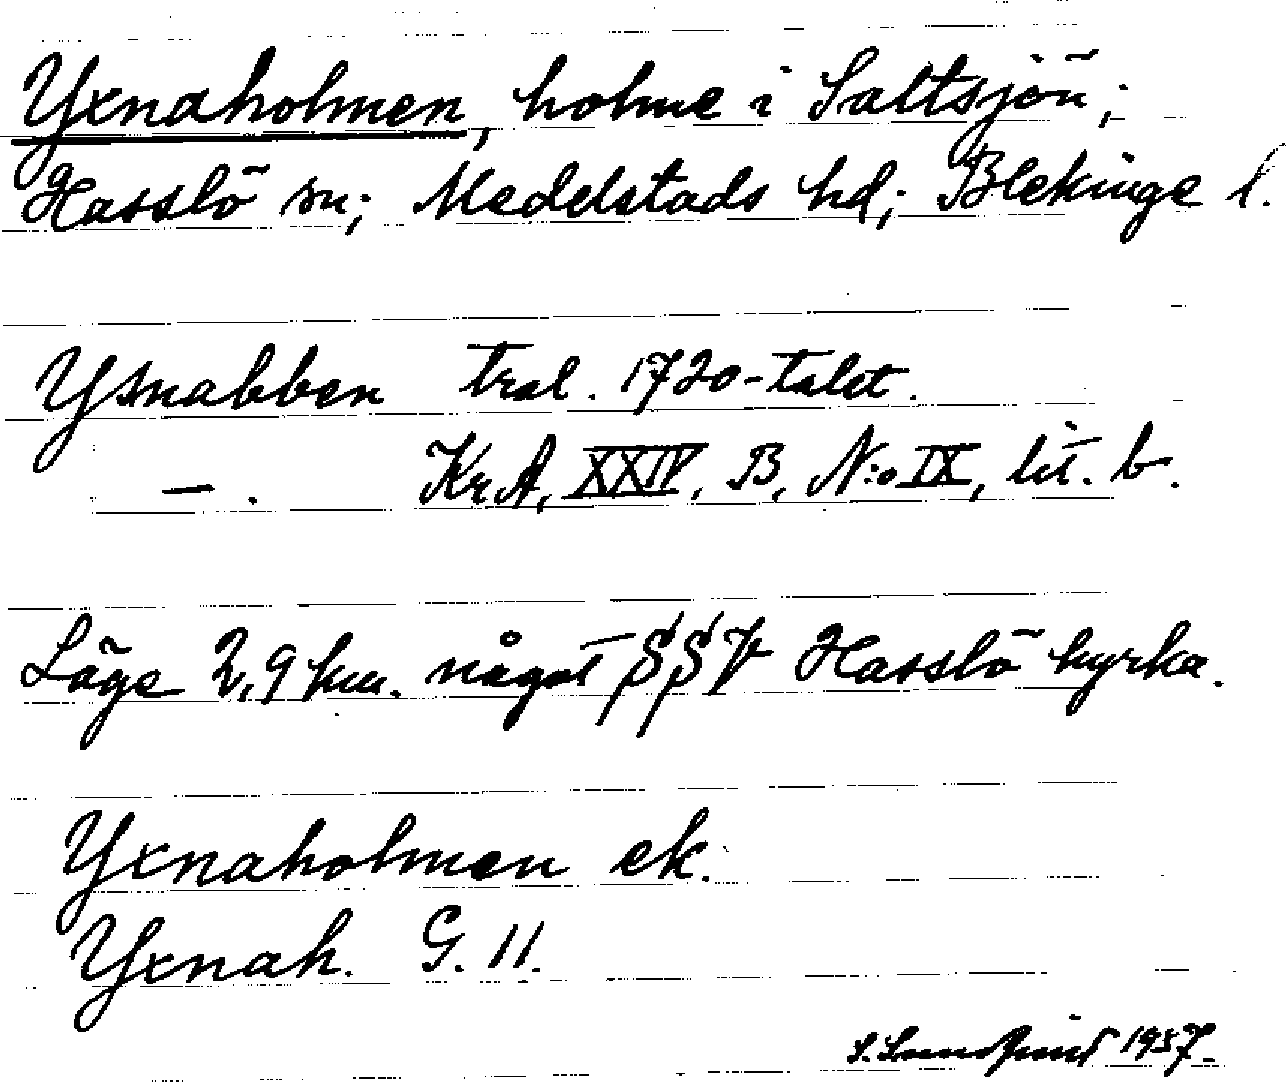 Yxnaholmen, holme i Saltsjön;
Hasslö sn; Medelstads hd; Blekinge l.
Ysnabben tral. 1720-talet.
— . Kr.A, XXIV, B, N:o IX, lit. b.
Läge 2,9 km. något SSV Hasslö kyrka.
Yxnaholmen ek.
Yxnah. G. 11.
1957.